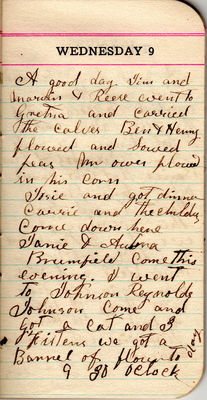 WEDNESDAY 9
A good day Jim and
Marvin & Reese went to
Gretna and carried
the calves Ben & Henry
plowed and sowed
peas Mr owen plowed
in his corn
Josie and got dinner
Carrie and the childre
Come down here
Janie &
Brumfield Come this
evening. I went
to Johnson Reynolds
Johnson Come and
got a cat and 3
Kittens we got a
Barrel of flour to day
9 30 oclock